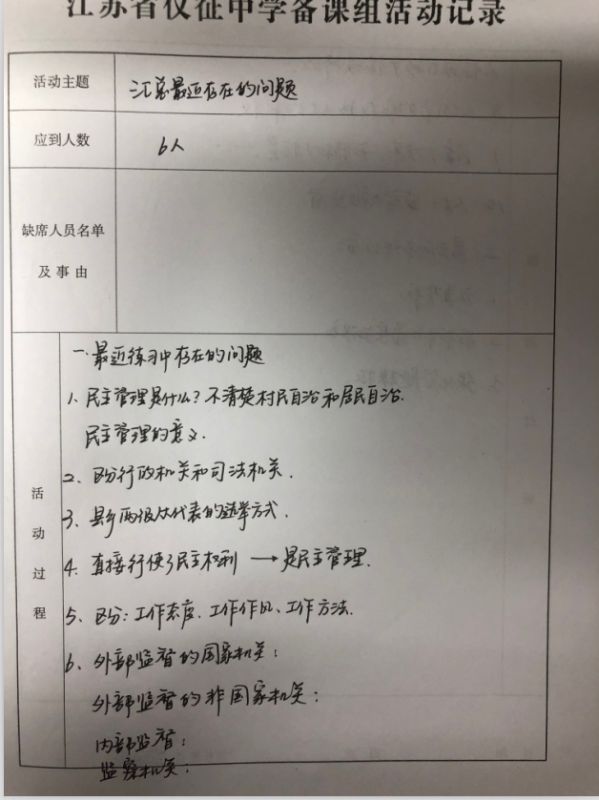 江苏省仪征中学备课组活动记录
活动主题
汇总最近存在的问题
应到人数
6人
缺席人员名单
及事由
活动过程
一、最近练习中存在的问题
1、民主管理是什么？不清楚村民自治和居民自治.
民主管理的意义.
2、区分行政机关和司法机关.
3、县乡两级人大代表的选举方式.
4. 直接行使了民主权利 → 是民主管理.
5、区分：工作态度. 工作作风、工作方法.
6、外部监督的国家机关：
外部监督的非国家机关：
内部监督：
监察机关：